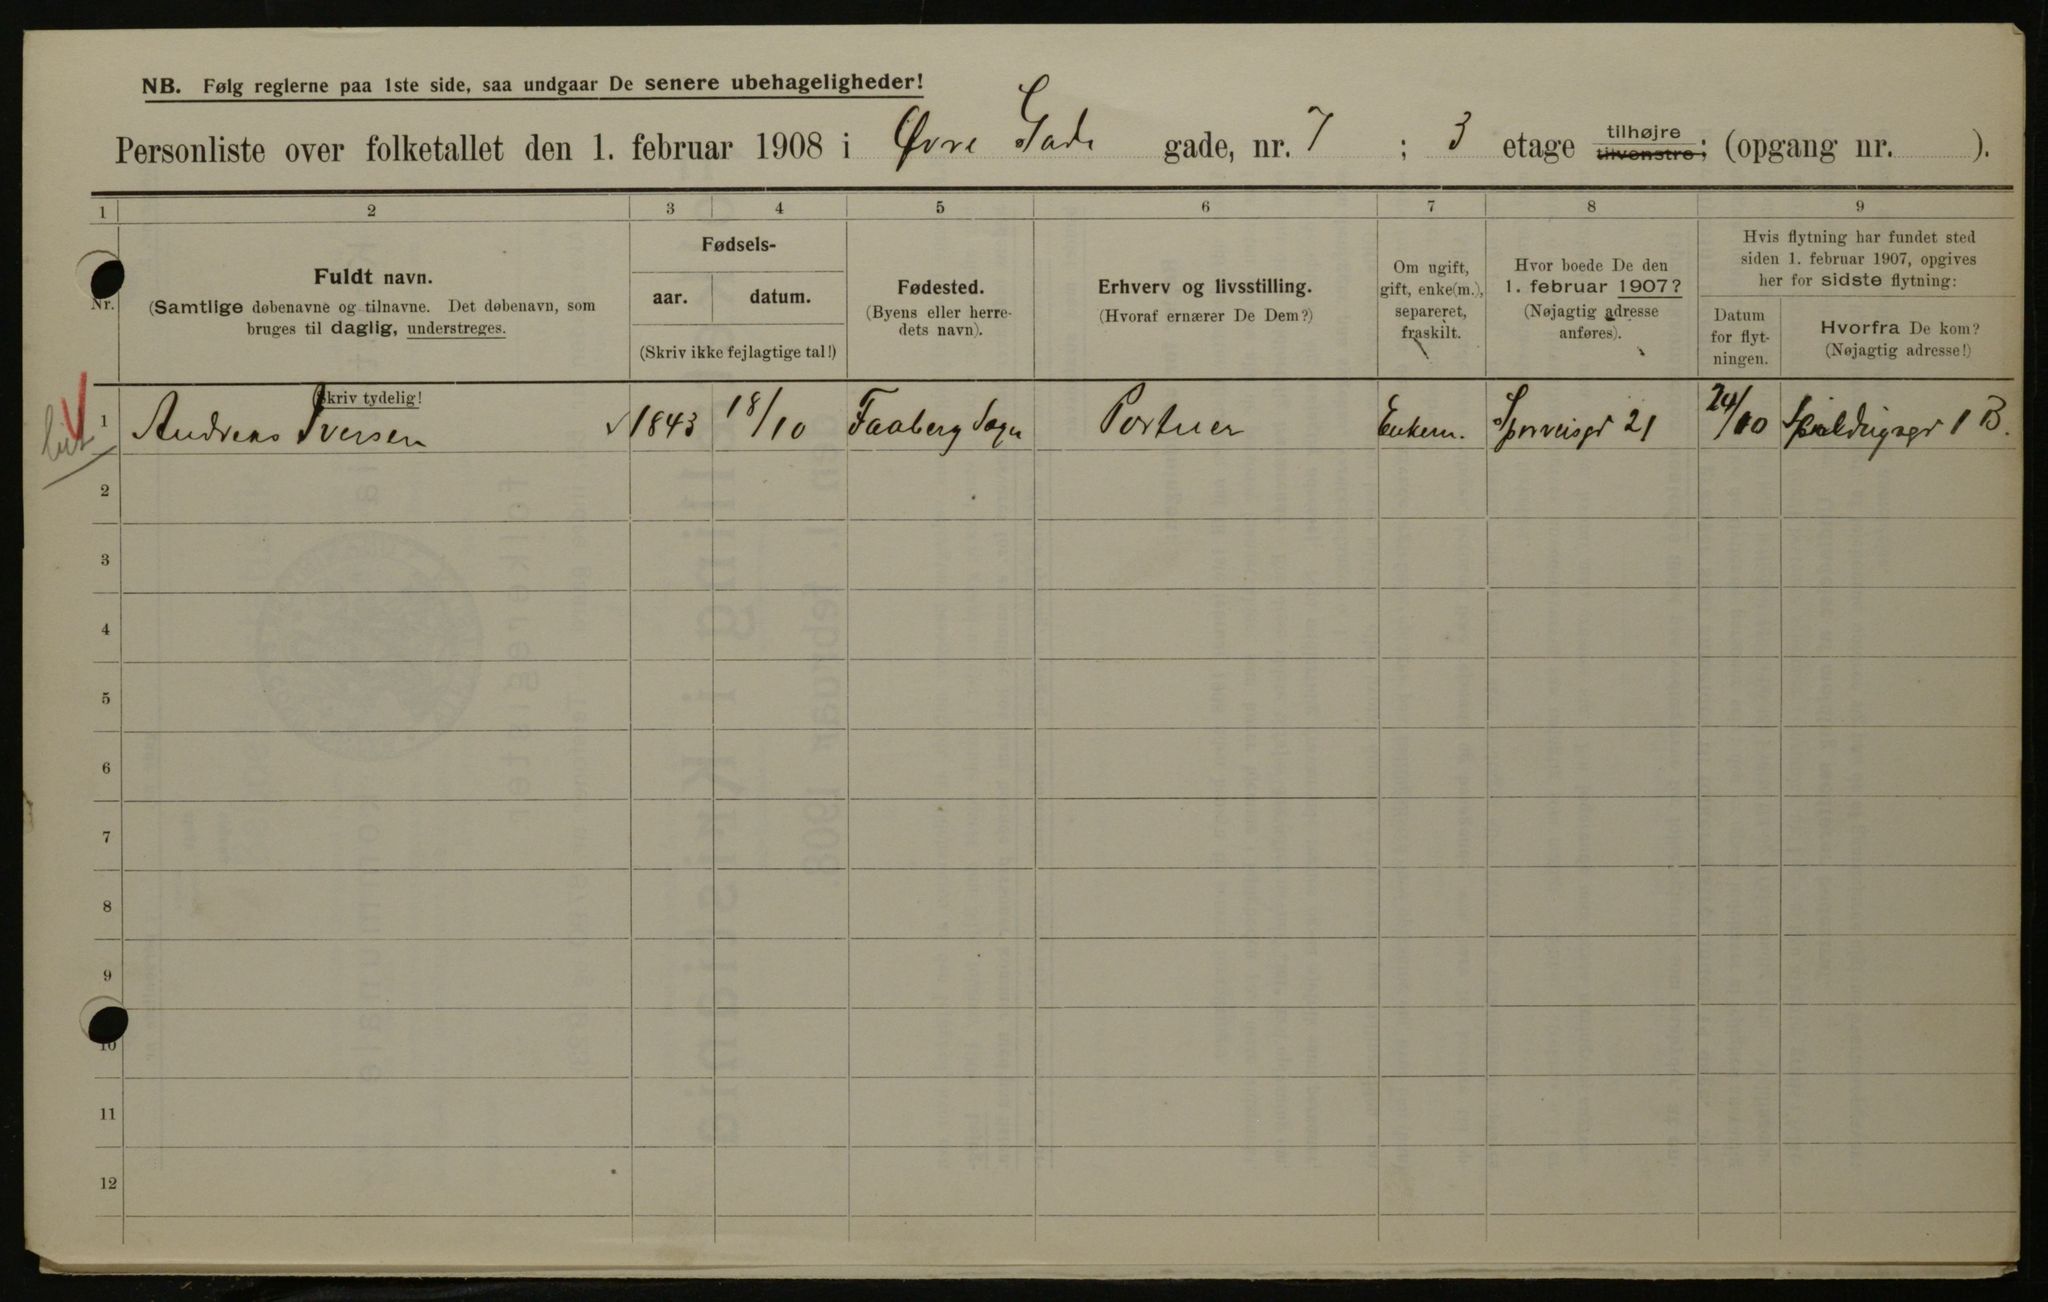 NB. Følg reglerne paa 1ste side, saa undgaar De senere ubehageligheder!
Personliste over folketallet den 1. februar 1908 i Øvre Gade gade, nr. 7 ; 3 etage tilhøjre tilvenstre; (opgang nr. ).
1 2 3 4 5 6 7 8 9
Nr.
Fuldt navn.
(Samtlige døbenavne og tilnavne. Det døbenavn, som
bruges til daglig, understreges.
Fødsels-
aar. datum.
(Skriv ikke fejlagtige tal!)
Fødested.
(Byens eller herre-
dets navn).
Erhverv og livsstilling.
(Hvoraf ernærer De Dem?)
Om ugift,
gift, enke(m.),
separeret,
fraskilt.
Hvor boede De den
1. februar 1907?
(Nøjagtig adresse
anføres).
Hvis flytning har fundet sted
siden 1. februar 1907, opgives
her for sidste flytning:
Datum
for flyt-
ningen.
Hvorfra De kom?
(Nøjagtig adresse!)
(Skriv tydelig!
1 Andreas Iversen 1843 18/10 Faaberg Sogn Portner Enkem. Sporveisgd 21 24/10 1 B.
2
3
4
5
6
7
8
9
10
11
12